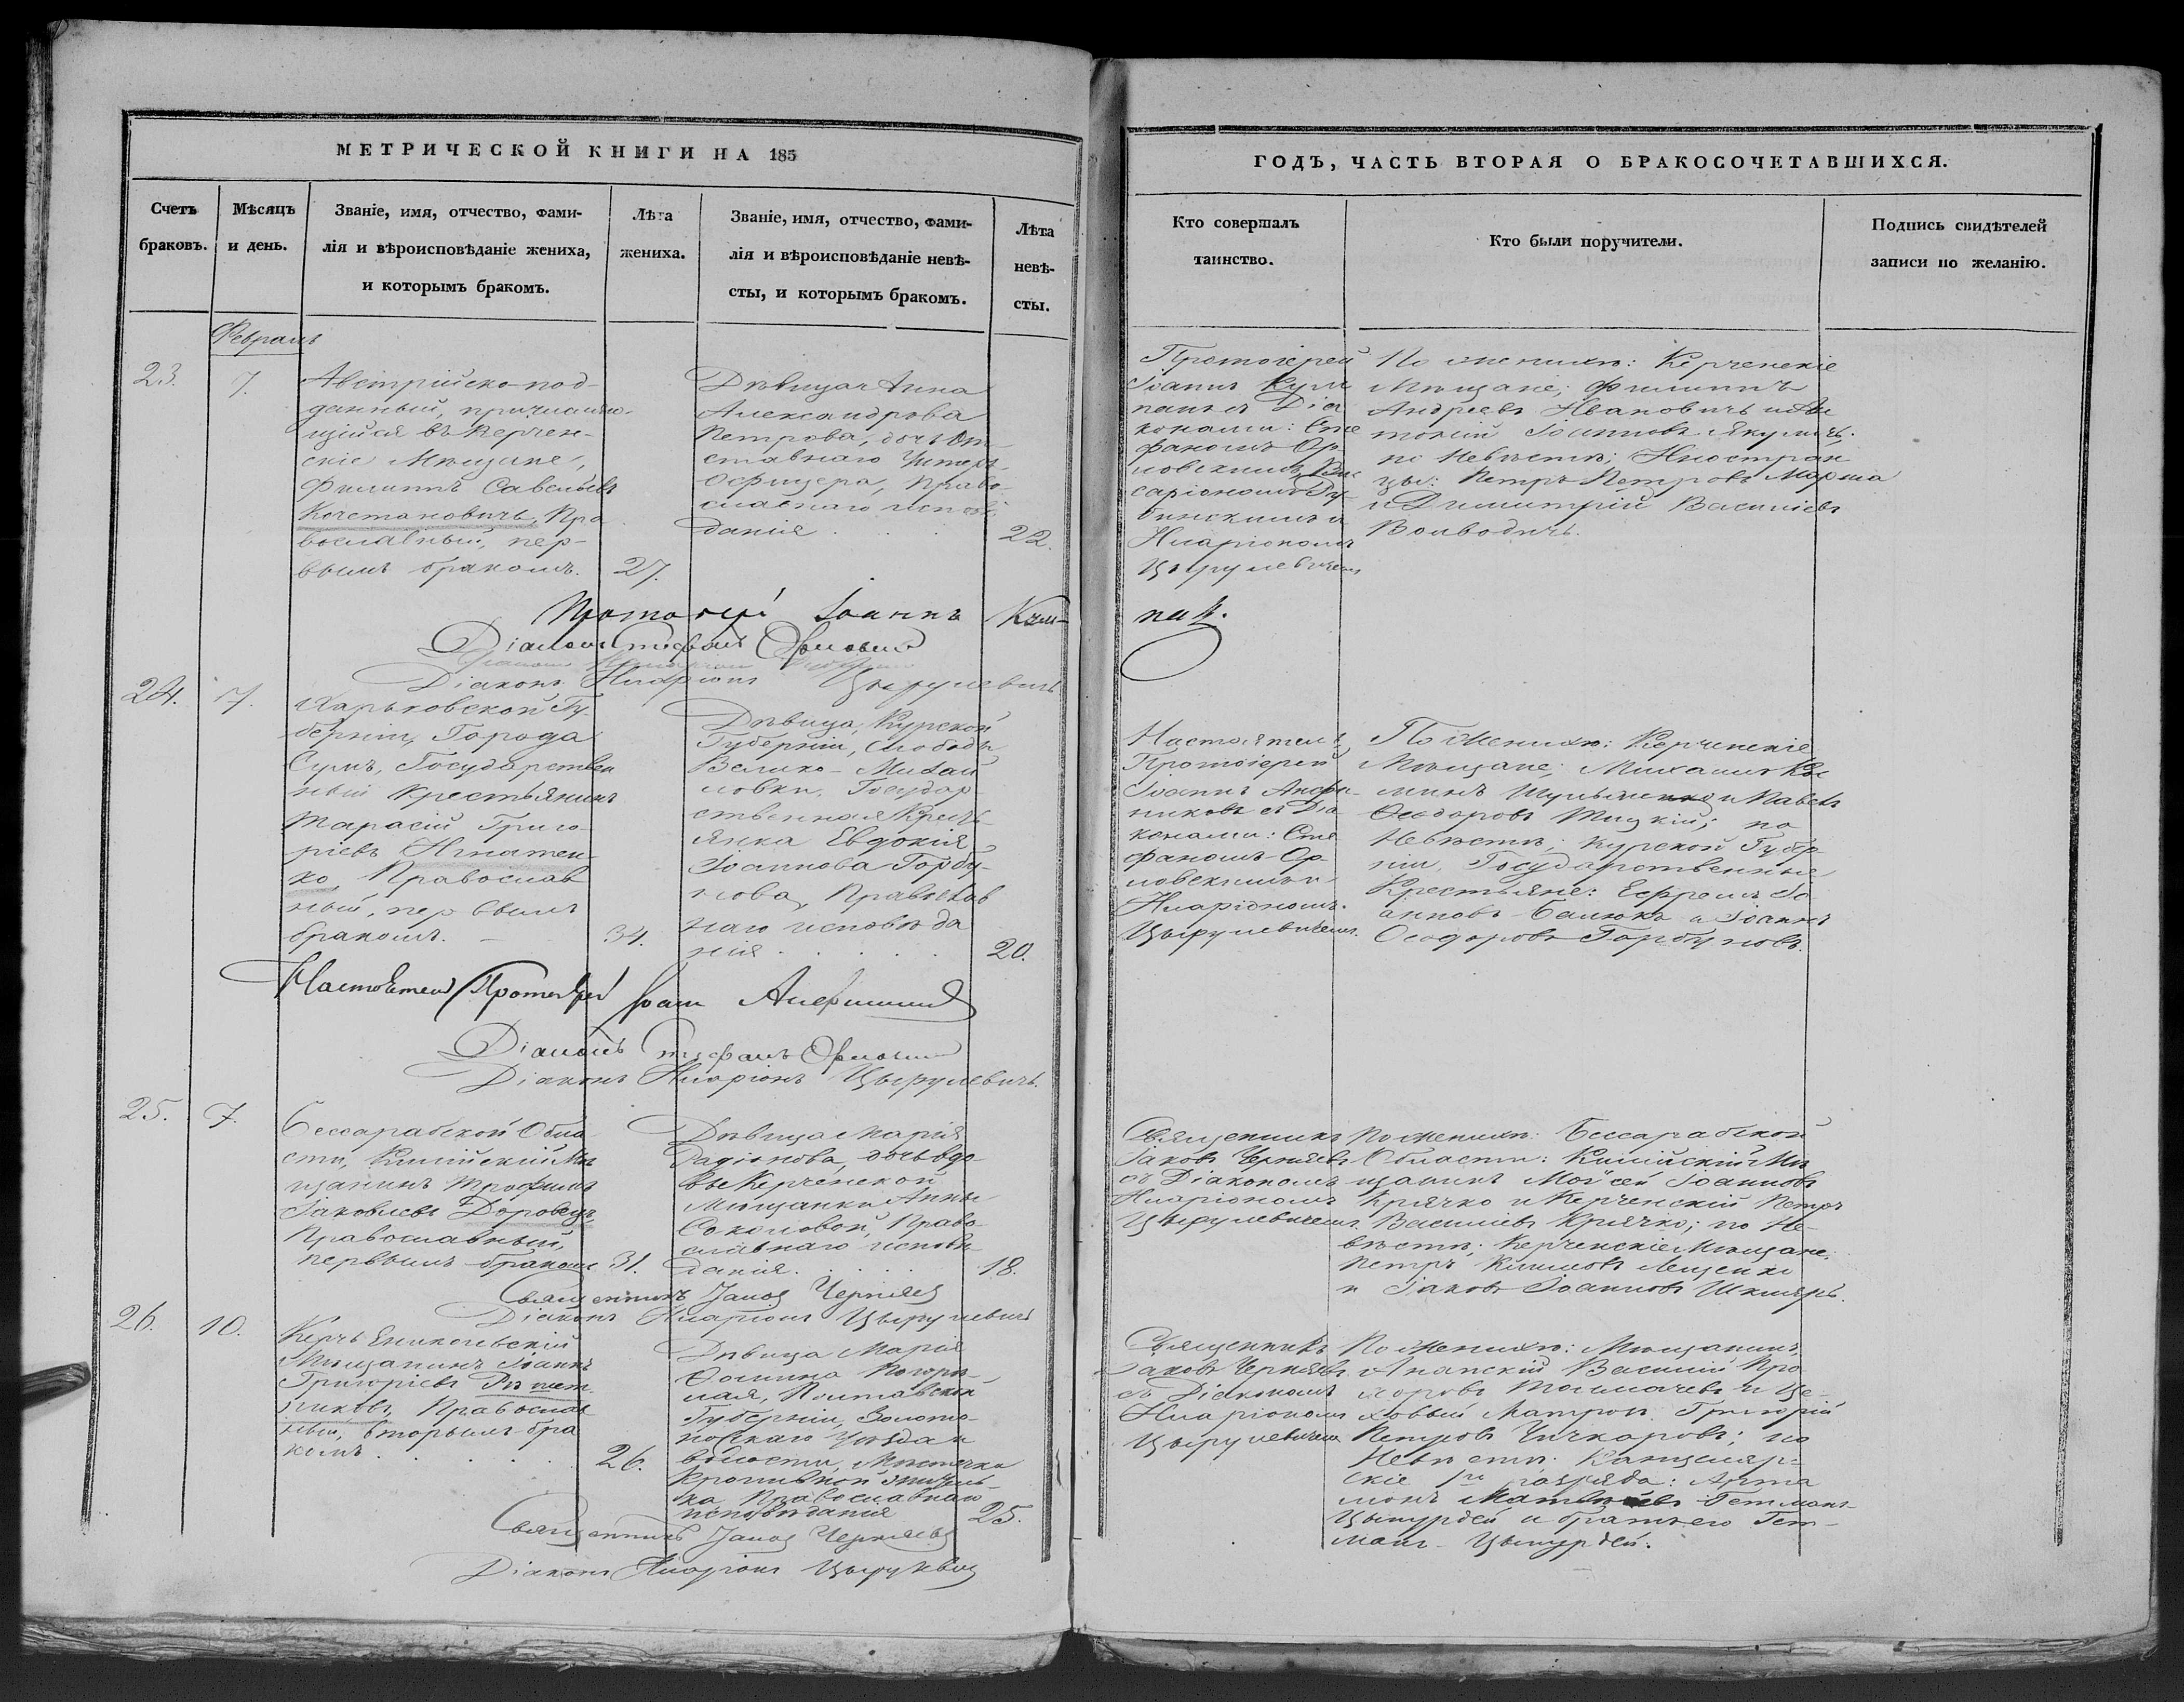 МЕТРИЧЕСКОЙ КНИГИ НА 185
Счетъ браковъ.
Мѣсяцъ и день.
Званіе, имя, отчество, фами-
лія и вѣроисповѣданіе жениха,
и которымъ бракомъ.
Лѣта
жениха.
Званіе, имя, отчество, фами-
лія и вѣроисповѣданіе невѣ-
сты, и которымъ бракомъ.
Лѣта
невѣ-
сты.
ГОДЪ, ЧАСТЬ ВТОРАЯ О БРАКОСОЧЕТАВШИХСЯ.
Кто совершалъ
таинство.
Кто были поручители.
Подпись свидѣтелей
записи по желанію.
Февраль
23.
7.
Австрійско-под-
данный, причисляю-
щійся въ Керчен-
скіе Мѣщане,
Филиппъ Савельевъ
Кочетановичъ, Пра
вославный, пер-
вымъ бракомъ.
27.
Дѣвица Анна
Александрова
Петрова, дочь От-
ставнаго Унтеръ-
Офицера, Право-
славнаго исповѣ
данія
22.
Протоіерей
Іоаннъ Кум
панъ съ Діа
конами: Сте
фаномъ Ор
ловскимъ, Вис
саріономъ Гу-
бинскимъ и
Иларіономъ
Цырулевичемъ
По женихѣ: Керченскіе
Мѣщане; Филиппъ
Андреевъ Ивановичъ и
Іоанновъ Якуличъ.
по Невѣстѣ; Иностран
цы: Петръ Петровъ Марша
и Димитрій Василіевъ
Воиводичъ.
Протоіерей Іоаннъ Кум-
пан.
Діаконъ Стефанъ Орловскій
Діаконъ Иларіонъ Цырулевичъ
24.
7.
Харьковской Гу-
берніи, Города
Сумъ, Государствен
ный Крестьянинъ
Тарасій Григо-
ріевъ Игнатен-
ко, Православ
ный, первымъ
бракомъ.
34.
Дѣвица, Курской
Губерніи, Слободы
Велико-Михай
ловки, Государ-
ственная Кресть
янка Евдокія
Іоаннова Горбу-
нова, Православ
наго исповѣда
нія
20.
Настоятель
Протоіерей
Іоаннъ Анфи-
никовъ съ Діа
конами: Сте
фаномъ Ор
ловскимъ и
Иларіономъ
Цырулевичемъ.
По Женихѣ: Керченскіе
Мѣщане; Михаилъ
и Павелъ
Ѳеодоровъ Тицкій; по
Невѣстѣ; Курской Губер
ніи, Государственные
Крестьяне: Ефремъ Іо
анновъ Балюкъ и Іоаннъ
Ѳеодоровъ Горбуновъ.
Настоятель Протоіерей Іоаннъ
Діаконъ Стефанъ Орловскій
Діаконъ Иларіонъ Цырулевичъ.
25.
7.
Бессарабской Обла
сти, Килійскій Мѣ
щанинъ Трофимъ
Іаковлевъ Доровецъ,
Православный,
первымъ бракомъ
31.
Дѣвица Марія
Радіонова, дочь вдо-
вы Керченской
Мѣщанки Анны
Соколовой, Право
славнаго исповѣ
данія
18.
Священникъ
Іаковъ Черняевъ
съ Діакономъ
Иларіономъ
Цырулевичемъ.
По женихѣ: Бессарабской
Области: Килійскій Мѣ
щанинъ Моѵсей Іоанновъ
Крячко и Керченскій Петръ
Василіевъ Крячко; по Не-
вѣстѣ; Керченскіе Мѣщане:
Петръ Климовъ Лещенко
и Іаковъ Іоанновъ Шкляръ.
Священникъ Іаковъ Черняевъ
Діаконъ Иларіонъ Цырулевичъ
26.
10.
Керчь Еникольскій
Мѣщанинъ Іоаннъ
Григоріевъ Рѣшет
никовъ, Православ
ный, вторымъ бра
комъ
26.
Дѣвица Марія
Ѳомина Погорѣ-
лая, Полтавской
Губерніи, Золото-
ношскаго Уѣзда и
волости, Мѣстечка
Кропивной
Православнаго
исповѣданія
25.
Священникъ
Іаковъ Черняевъ
съ Діакономъ
Иларіономъ
Цырулевичемъ
По Женихѣ: Мѣщанинъ
Анапскій Василій Про
хоровъ Толмачевъ и Це-
ховый Матросъ Григорій
Петровъ Чичкаровъ; по
Невѣстѣ: Канцеляр-
скіе 1го разряда: Арта
монъ Матвѣевъ Гетманъ-
Цыпурдей и братъ его Гет-
манъ-Цыпурдей.
Священникъ Іаковъ Черняевъ
Діаконъ Иларіонъ Цырулевичъ